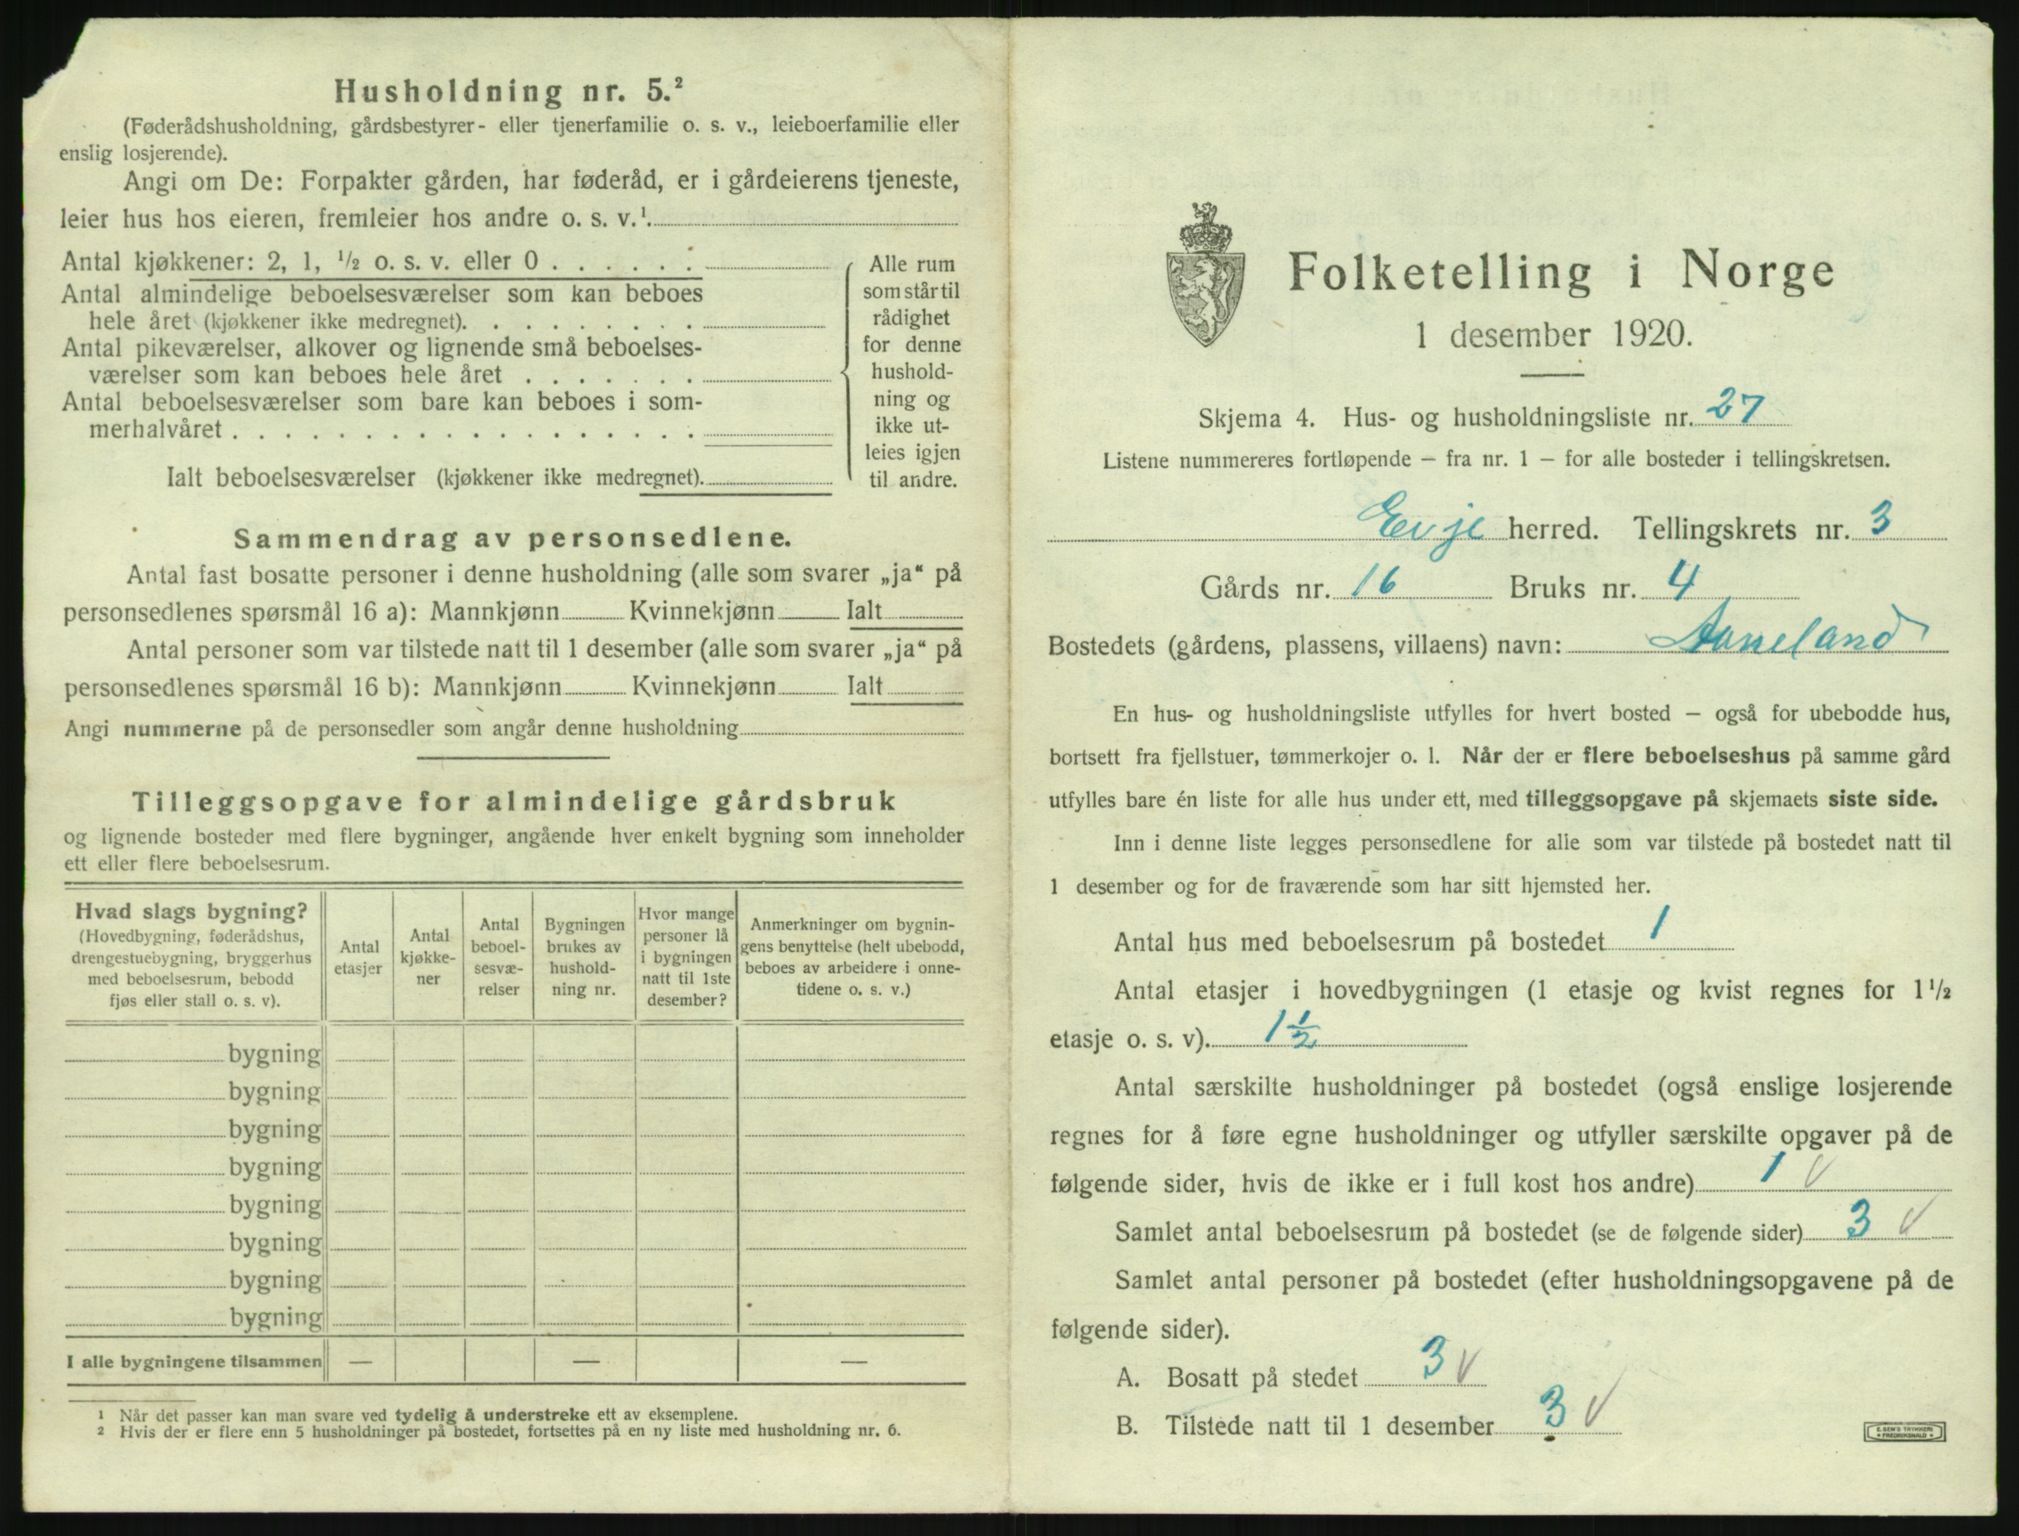 Husholdning nr. 5.²
(Føderådshusholdning, gårdsbestyrer- eller tjenerfamilie o. s. v., leieboerfamilie eller
enslig losjerende).
Angi om De: Forpakter gården, har føderåd, er i gårdeierens tjeneste,
leier hus hos eieren, fremleier hos andre o. s. v.¹
Antal kjøkkener: 2, 1, ½ o. s. v. eller 0 . . . . . .
Antal almindelige beboelsesværelser som kan beboes
hele året (kjøkkener ikke medregnet). . . . . . . . .
Antal pikeværelser, alkover og lignende små beboelses-
værelser som kan beboes hele året . . . . . . .
Antal beboelsesværelser som bare kan beboes i som-
merhalvåret . . . . . . . . . . . . . . . . . .
Ialt beboelsesværelser (kjøkkener ikke medregnet).
Alle rum
som står til
rådighet
for denne
hushold-
ning og
ikke ut-
leies igjen
til andre.
Sammendrag av personsedlene.
Antal fast bosatte personer i denne husholdning (alle som svarer „ja“ på
personsedlenes spørsmål 16 a): Mannkjønn Kvinnekjønn Ialt
Antal personer som var tilstede natt til 1 desember (alle som svarer „ja“ på
personsedlenes spørsmål 16 b): Mannkjønn Kvinnekjønn Ialt
Angi nummerne på de personsedler som angår denne husholdning
Tilleggsopgave for almindelige gårdsbruk
og lignende bosteder med flere bygninger, angående hver enkelt bygning som inneholder
ett eller flere beboelsesrum.
Hvad slags bygning?
(Hovedbygning, føderådshus,
drengestuebygning, bryggerhus
med beboelsesrum, bebodd
fjøs eller stall o. s. v).
Antal
etasjer
Antal
kjøkke-
ner
Antal
beboel-
sesvæ-
relser
Bygningen
brukes av
hushold-
ning nr.
Hvor mange
personer lå
i bygningen
natt til 1ste
desember?
Anmerkninger om bygnin-
gens benyttelse (helt ubebodd,
beboes av arbeidere i onne-
tidene o. s. v.)
bygning
bygning
bygning
bygning
bygning
bygning
bygning
bygning
I alle bygningene tilsammen — — —
¹ Når det passer kan man svare ved tydelig å understreke ett av eksemplene.
² Hvis der er flere enn 5 husholdninger på bostedet, fortsettes på en ny liste med husholdning nr. 6.
Folketelling i Norge
1 desember 1920.
Skjema 4. Hus- og husholdningsliste nr. 27
Listene nummereres fortløpende – fra nr. 1 – for alle bosteder i tellingskretsen.
Evje herred. Tellingskrets nr. 3
Gårds nr. 16 Bruks nr. 4
Bostedets (gårdens, plassens, villaens) navn: Aaneland
En hus- og husholdningsliste utfylles for hvert bosted – også for ubebodde hus,
bortsett fra fjellstuer, tømmerkojer o. l. Når der er flere beboelseshus på samme gård
utfylles bare én liste for alle hus under ett, med tilleggsopgave på skjemaets siste side.
Inn i denne liste legges personsedlene for alle som var tilstede på bostedet natt til
1 desember og for de fraværende som har sitt hjemsted her.
Antal hus med beboelsesrum på bostedet 1
Antal etasjer i hovedbygningen (1 etasje og kvist regnes for 1½
etasje o. s. v). 1½
Antal særskilte husholdninger på bostedet (også enslige losjerende
regnes for å føre egne husholdninger og utfyller særskilte opgaver på de
følgende sider, hvis de ikke er i full kost hos andre) 1 √
Samlet antal beboelsesrum på bostedet (se de følgende sider) 3 √
Samlet antal personer på bostedet (efter husholdningsopgavene på de
følgende sider).
A. Bosatt på stedet 3 √
B. Tilstede natt til 1 desember 3 √